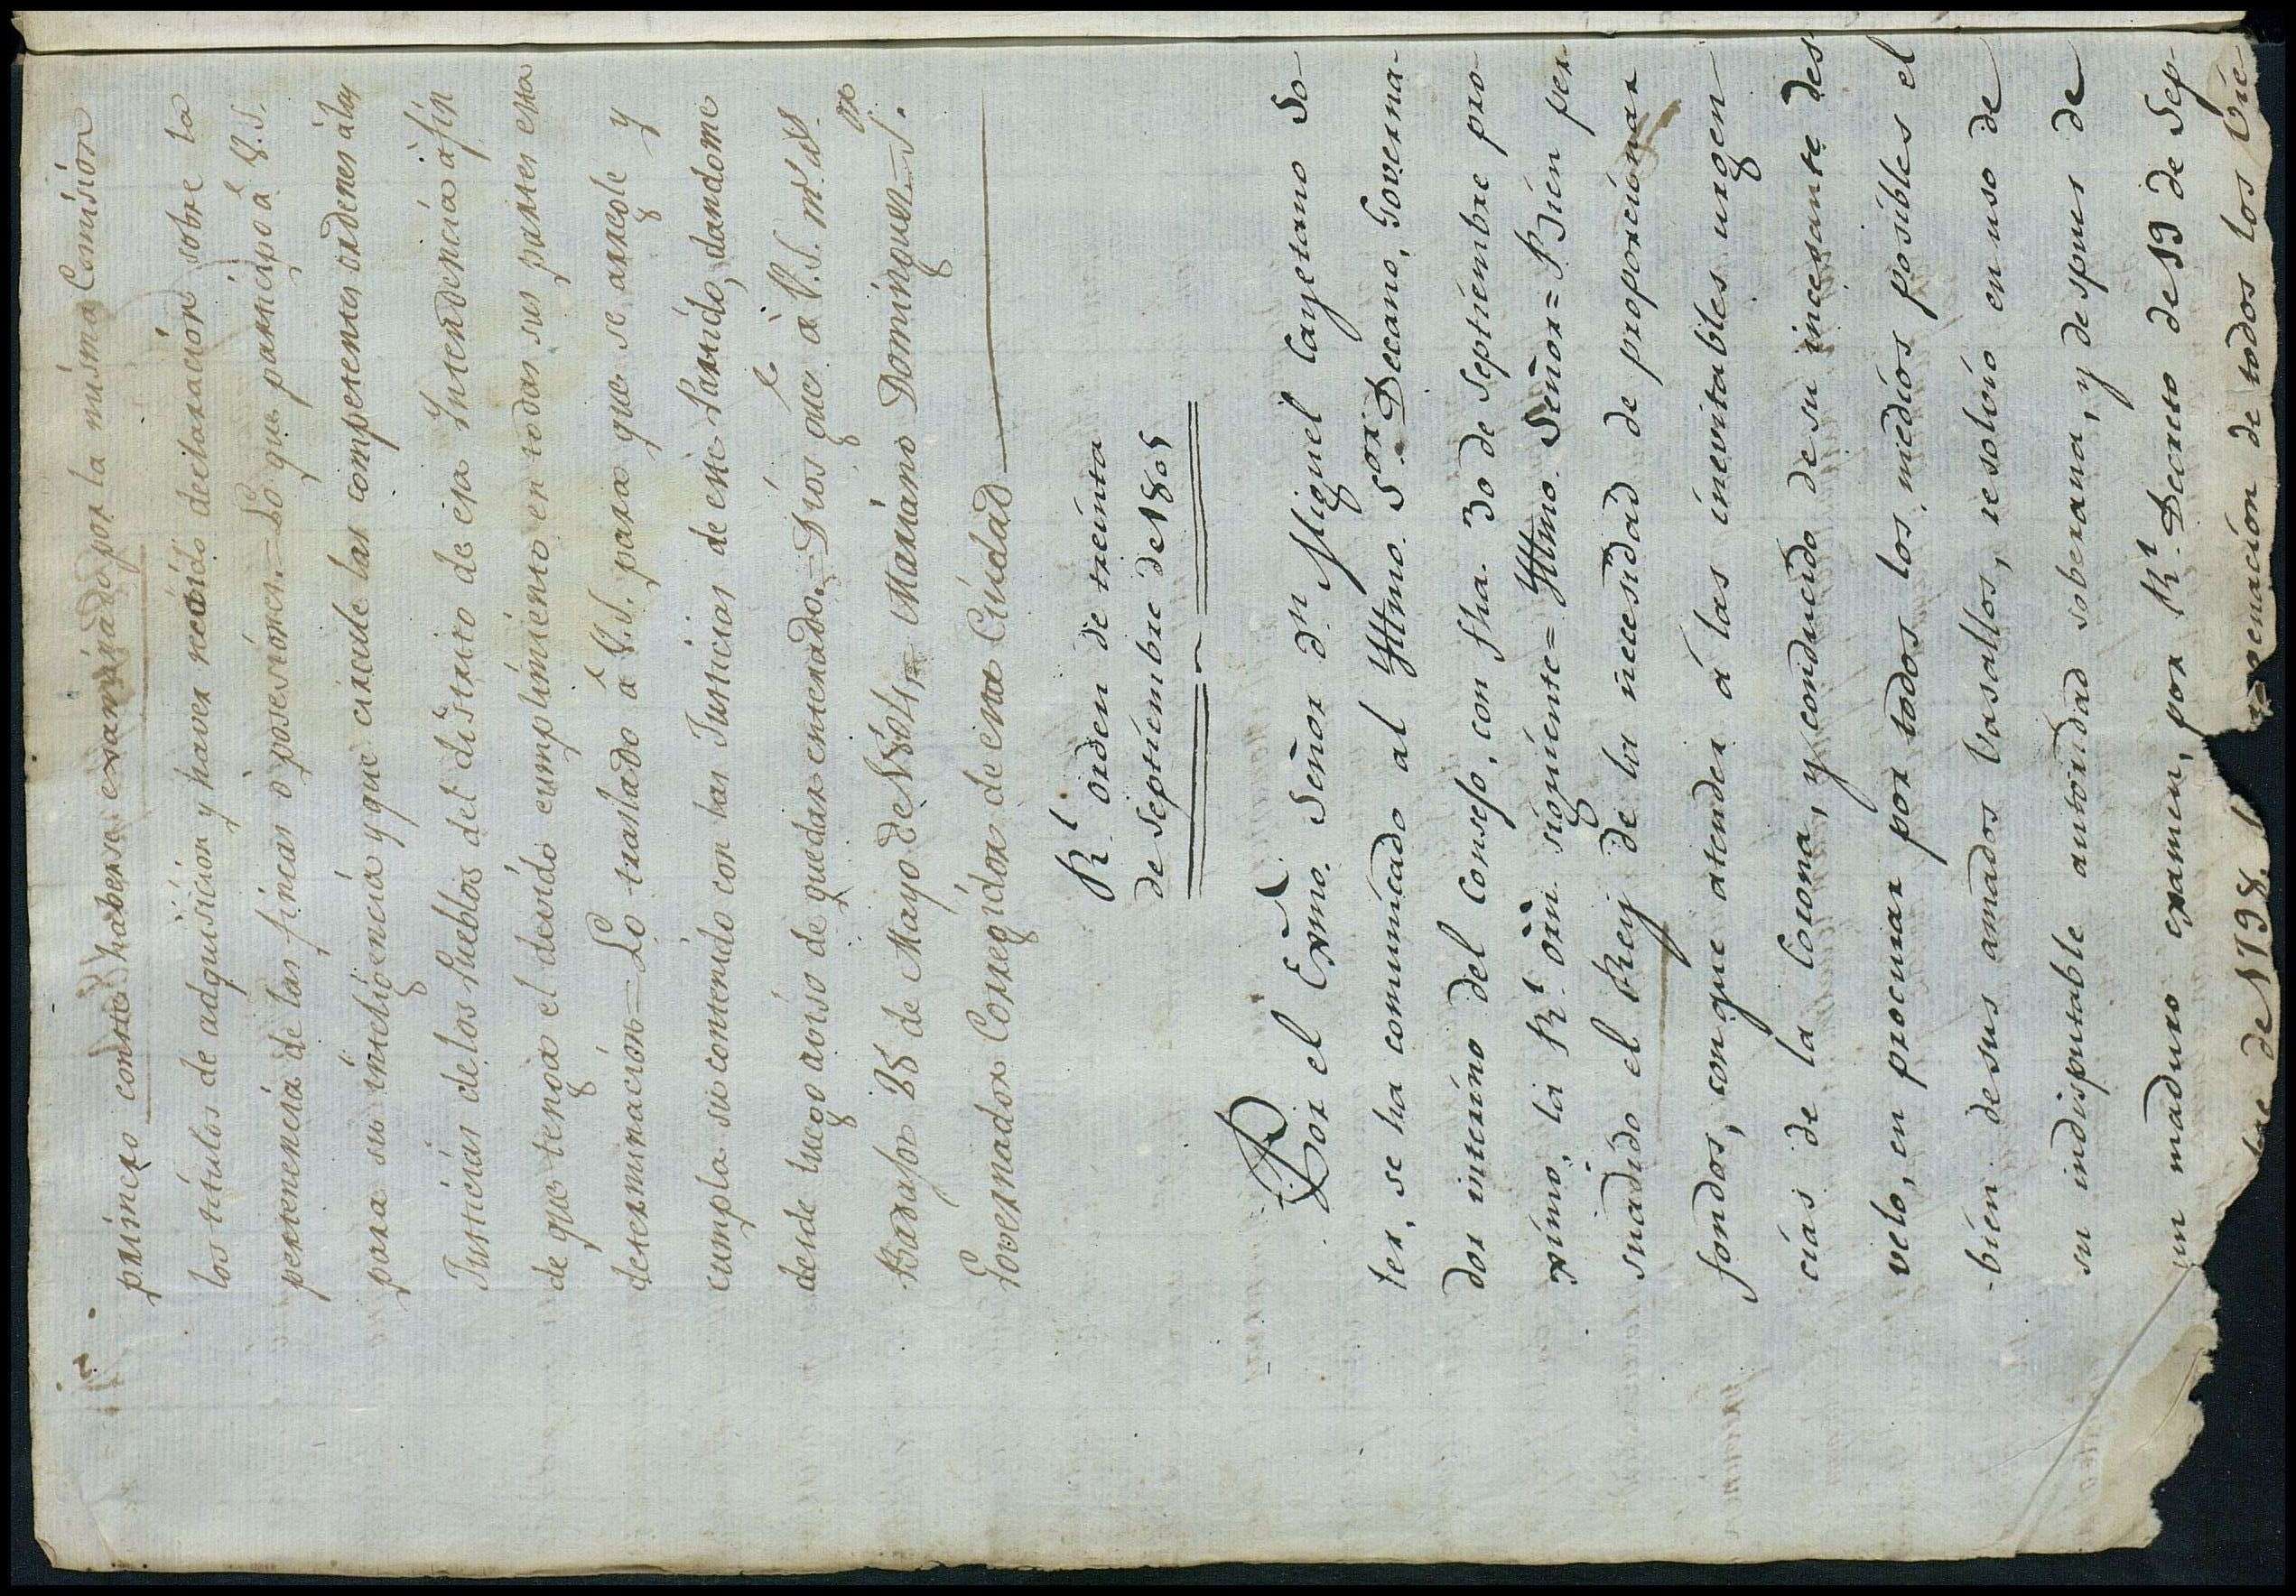 primero conste haberse examinado por la misma Comision
los titulos de adquisicion y haver recaido declaracion sobre la
pertenencia de las fincas ó posesiones.=Lo que participo á V.S.
para su inteligencia y que circule las competentes ordenes álas
Justicias delos Pueblos del distrito de esa Intendencia áfin
de que tenga el devido cumplimiento en todas sus partes esta
determinacion=Lo traslado á V.S. para que se arregle y
cumpla su contenido con las Justicias de ese Partido, dandome
desde luego aviso de quedar enterado.=Dios gue á V.S. ms. as.
Badajoz 28 de Mayo de 1804= Mariano Dominguez=Sor.
Governador Corregidor de esta Ciudad
Rl. orden de treinta
de Septiembre de 1805
Por el Exmo. Señor dn. Miguel Cayetano So
ler, se ha comunicado al Yltmo. Sor. Decano, Governa-
dor interino del Consejo, con fha. 30 de Septiembre pro-
ximo, la Rl. orn siguiente= Yltmo. Señor= Bien per
suadido el Rey de la necesidad de proporcionar
fondos, con que atender á las inevitables urgen
cias de la Corona, y conducido de su incesante des
velo, en procurar por todos los medios posibles el
bien desus amados Vasallos, resolvió en uso de
su indisputable autoridad soberana, y despues de
un maduro examen, por Rl. Decreto de 19 de Sep-
bre de 1798. la enagenacion de todos los Vie